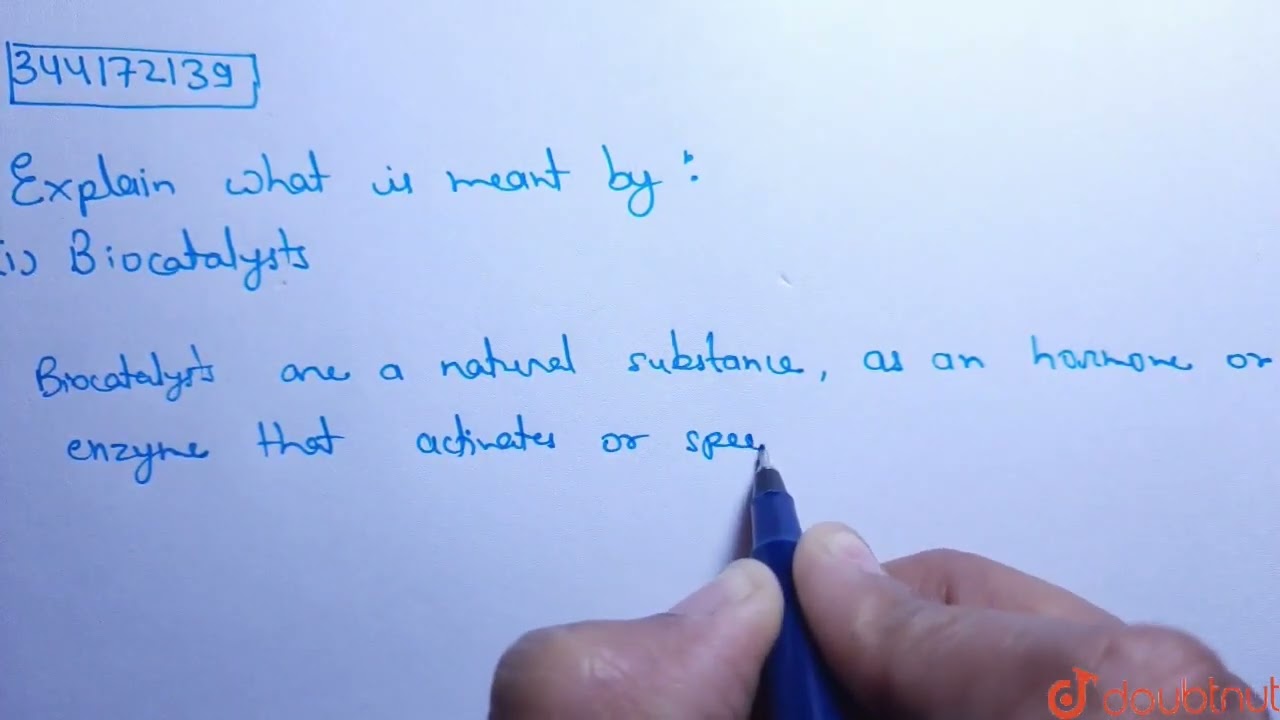 344172139
Explain what is meant by :
(i) Biocatalysts
Biocatalysts are a natural substance, as an harmone or
enzyme that activates or spee
doubtnut